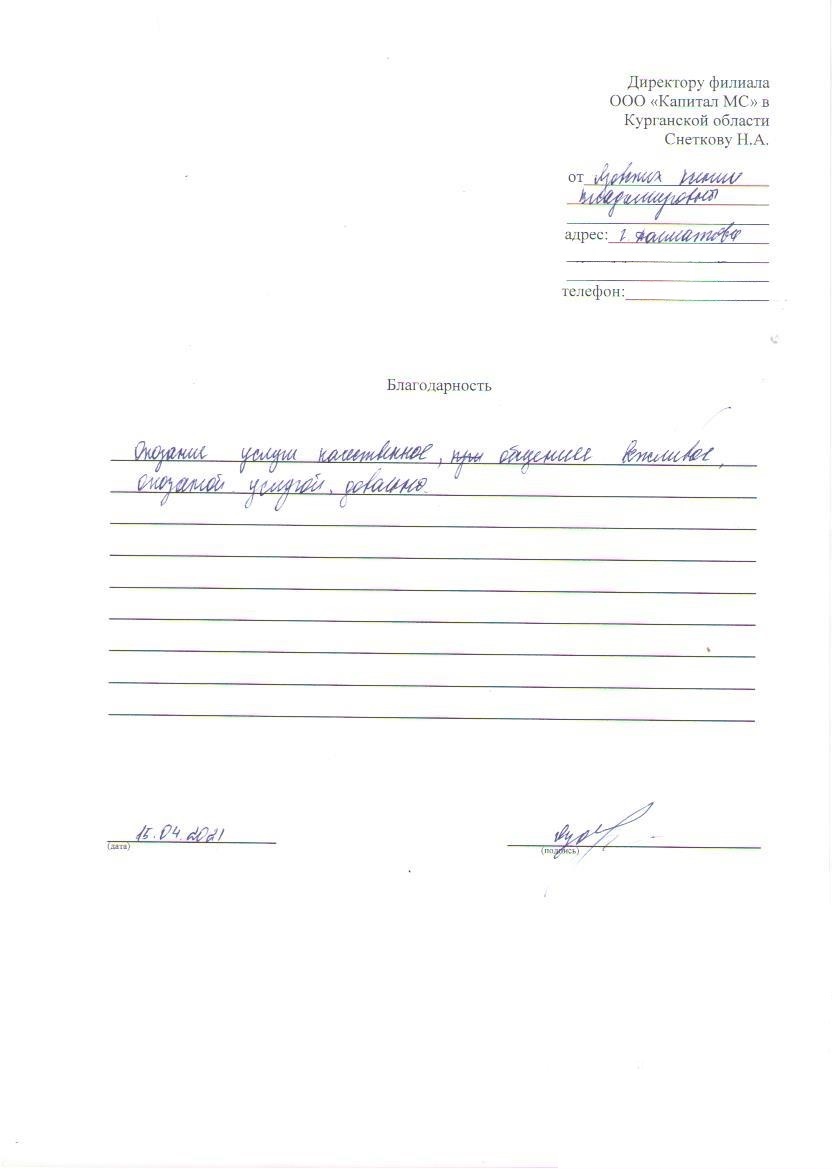 Директору филиала
ООО «Капитал МС» в
Курганской области
Снеткову Н.А.
от
Владимировны
адрес: г. Далматово
телефон:
Благодарность
Оказание услуги качественное, при общение вежливое,
оказаной услугой довольно.
15.04.2021
(дата)
(подпись)